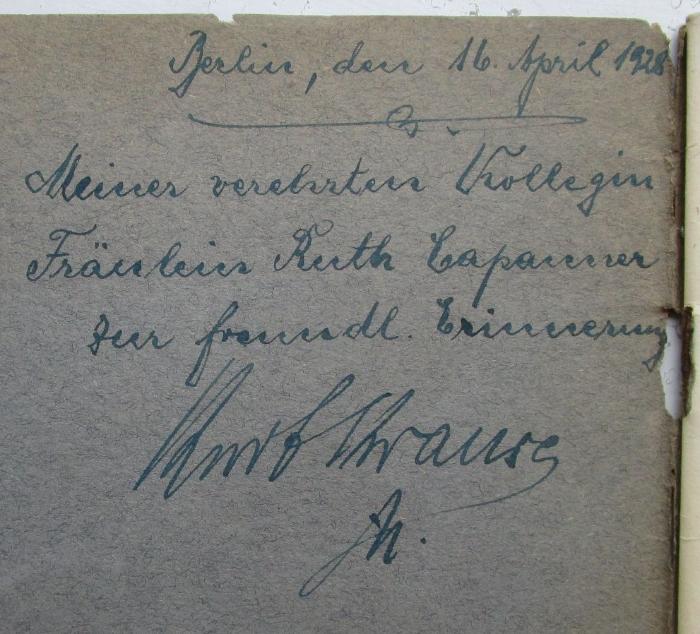 Berlin, den 16. April 1928
Meiner verehrten Kollegin
Fräulein Ruth Capanner
zur freundl. Erinnerung
Kurt Krause